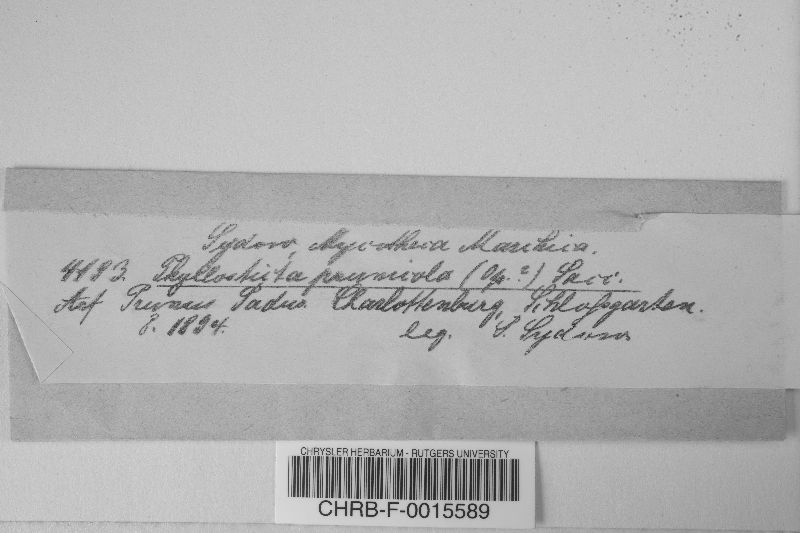 Sydow, Mycotheca Marchica.
4193. Phyllosticta prunicola (Op.?) Sacc.
Auf Prunus Padus. Charlottenburg, Schloßgarten.
8. 1894. leg. P. Sydow
CHRYSLER HERBARIUM - RUTGERS UNIVERSITY
CHRB-F-0015589